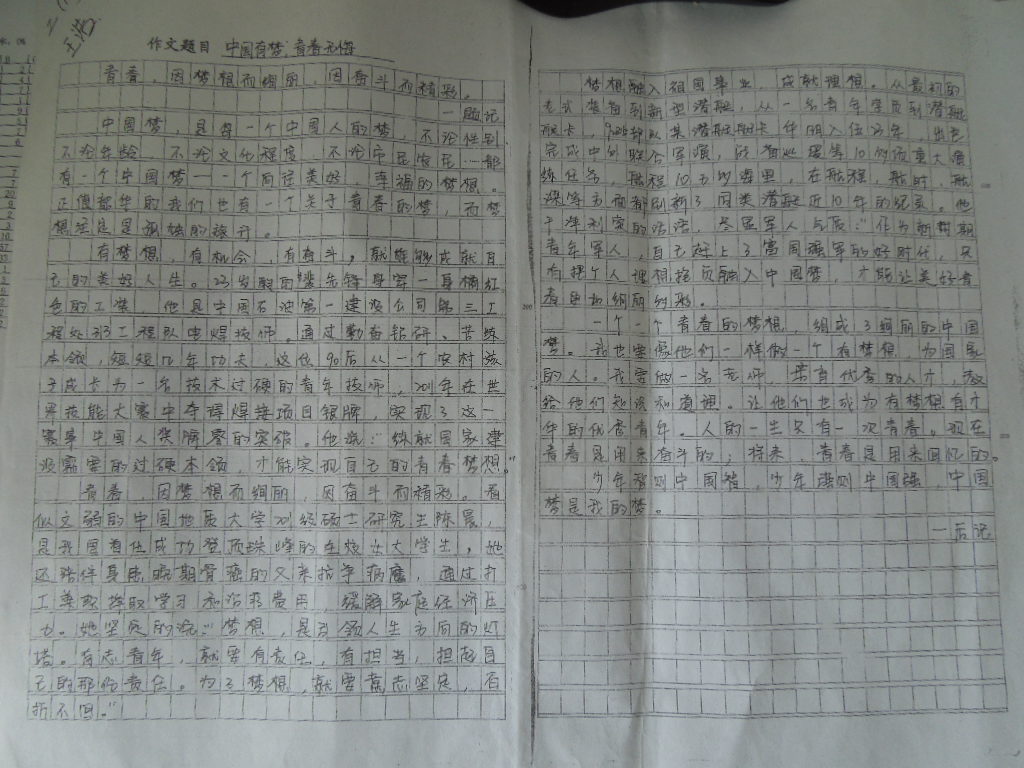 王浩
作文题目 中国有梦，青春无悔
青春，因梦想而绚丽，因奋斗而精彩。
—题记
中国梦，是每一个中国人的梦，不论性别
不论年龄，不论文化程度，不论市民农民…都
有一个中国梦—一个向往美好、幸福的梦想。
正值韶华的我们也有一个关于青春的梦，而梦
想注定是孤独的旅行。
有梦想，有机会，有奋斗，就能够成就自
己的美好人生。23岁的裴先锋身穿一身橘红
色的工装，他是中国石油第一建设公司第三工
程处形工程队电焊技师。通过勤奋钻研、苦练
本领，短短几年功夫，这位90后从一个农村孩
子成长为一名技术过硬的青年技师，2011年在世
界技能大赛中夺得焊接项目银牌，实现了这一
赛事中国人奖牌零的突破。他说：“练就国家建
设需要的过硬本领，才能实现自己的青春梦想。”
青春，因梦想而绚丽，因奋斗而精彩。看
似文弱的中国地质大学2011级硕士研究生陈晨，
是我国首位成功登顶珠峰的在校女大学生，她
还陪伴身患晚期骨癌的父亲抗争病魔，通过打
工兼职挣取学习和治疗费用，缓解家庭经济压
力。她坚定的说：“梦想，是引领人生方向的灯
塔。有志青年，就要有责任，有担当，担起自
己的那份责任。为了梦想，就要意志坚定，百
折不回。”
梦想融入祖国事业，成就理想。从最初的
老式装备到新型潜艇，从一名青年学员到潜艇
完成中外联合军演，战备巡逻等10余项重大演
练任务，航程10万余海里，在航程，航时，航
速等方面都刷新了同类潜艇近10年的纪录。他
干净利索的话语，尽显军人气质：“作为新时期
青年军人，自己赶上了富国强军的好时代，只
有把个人理想抱负融入中国梦，才能让美好青
春更加绚丽多彩。
一个一个青春的梦想，组成了绚丽的中国
梦。我也要像他们一样做一个有梦想，为国家
的人。我要做一名老师，培育优秀的人才，教
给他们知识和道理。让他们也成为有梦想有才
华的优秀青年。人的一生只有一次青春。现在
青春是用来奋斗的；将来，青春是用来回忆的。
少年智则中国智，少年强则中国强，中国
梦是我的梦。
—后记